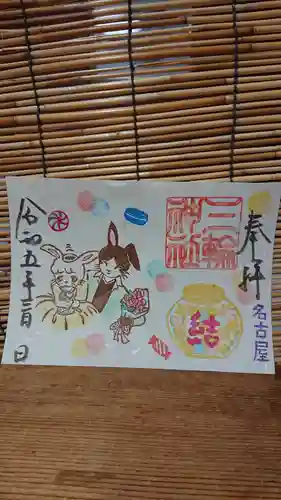 奉拝
名古屋
三輪
神社
結
令和五年三月 日